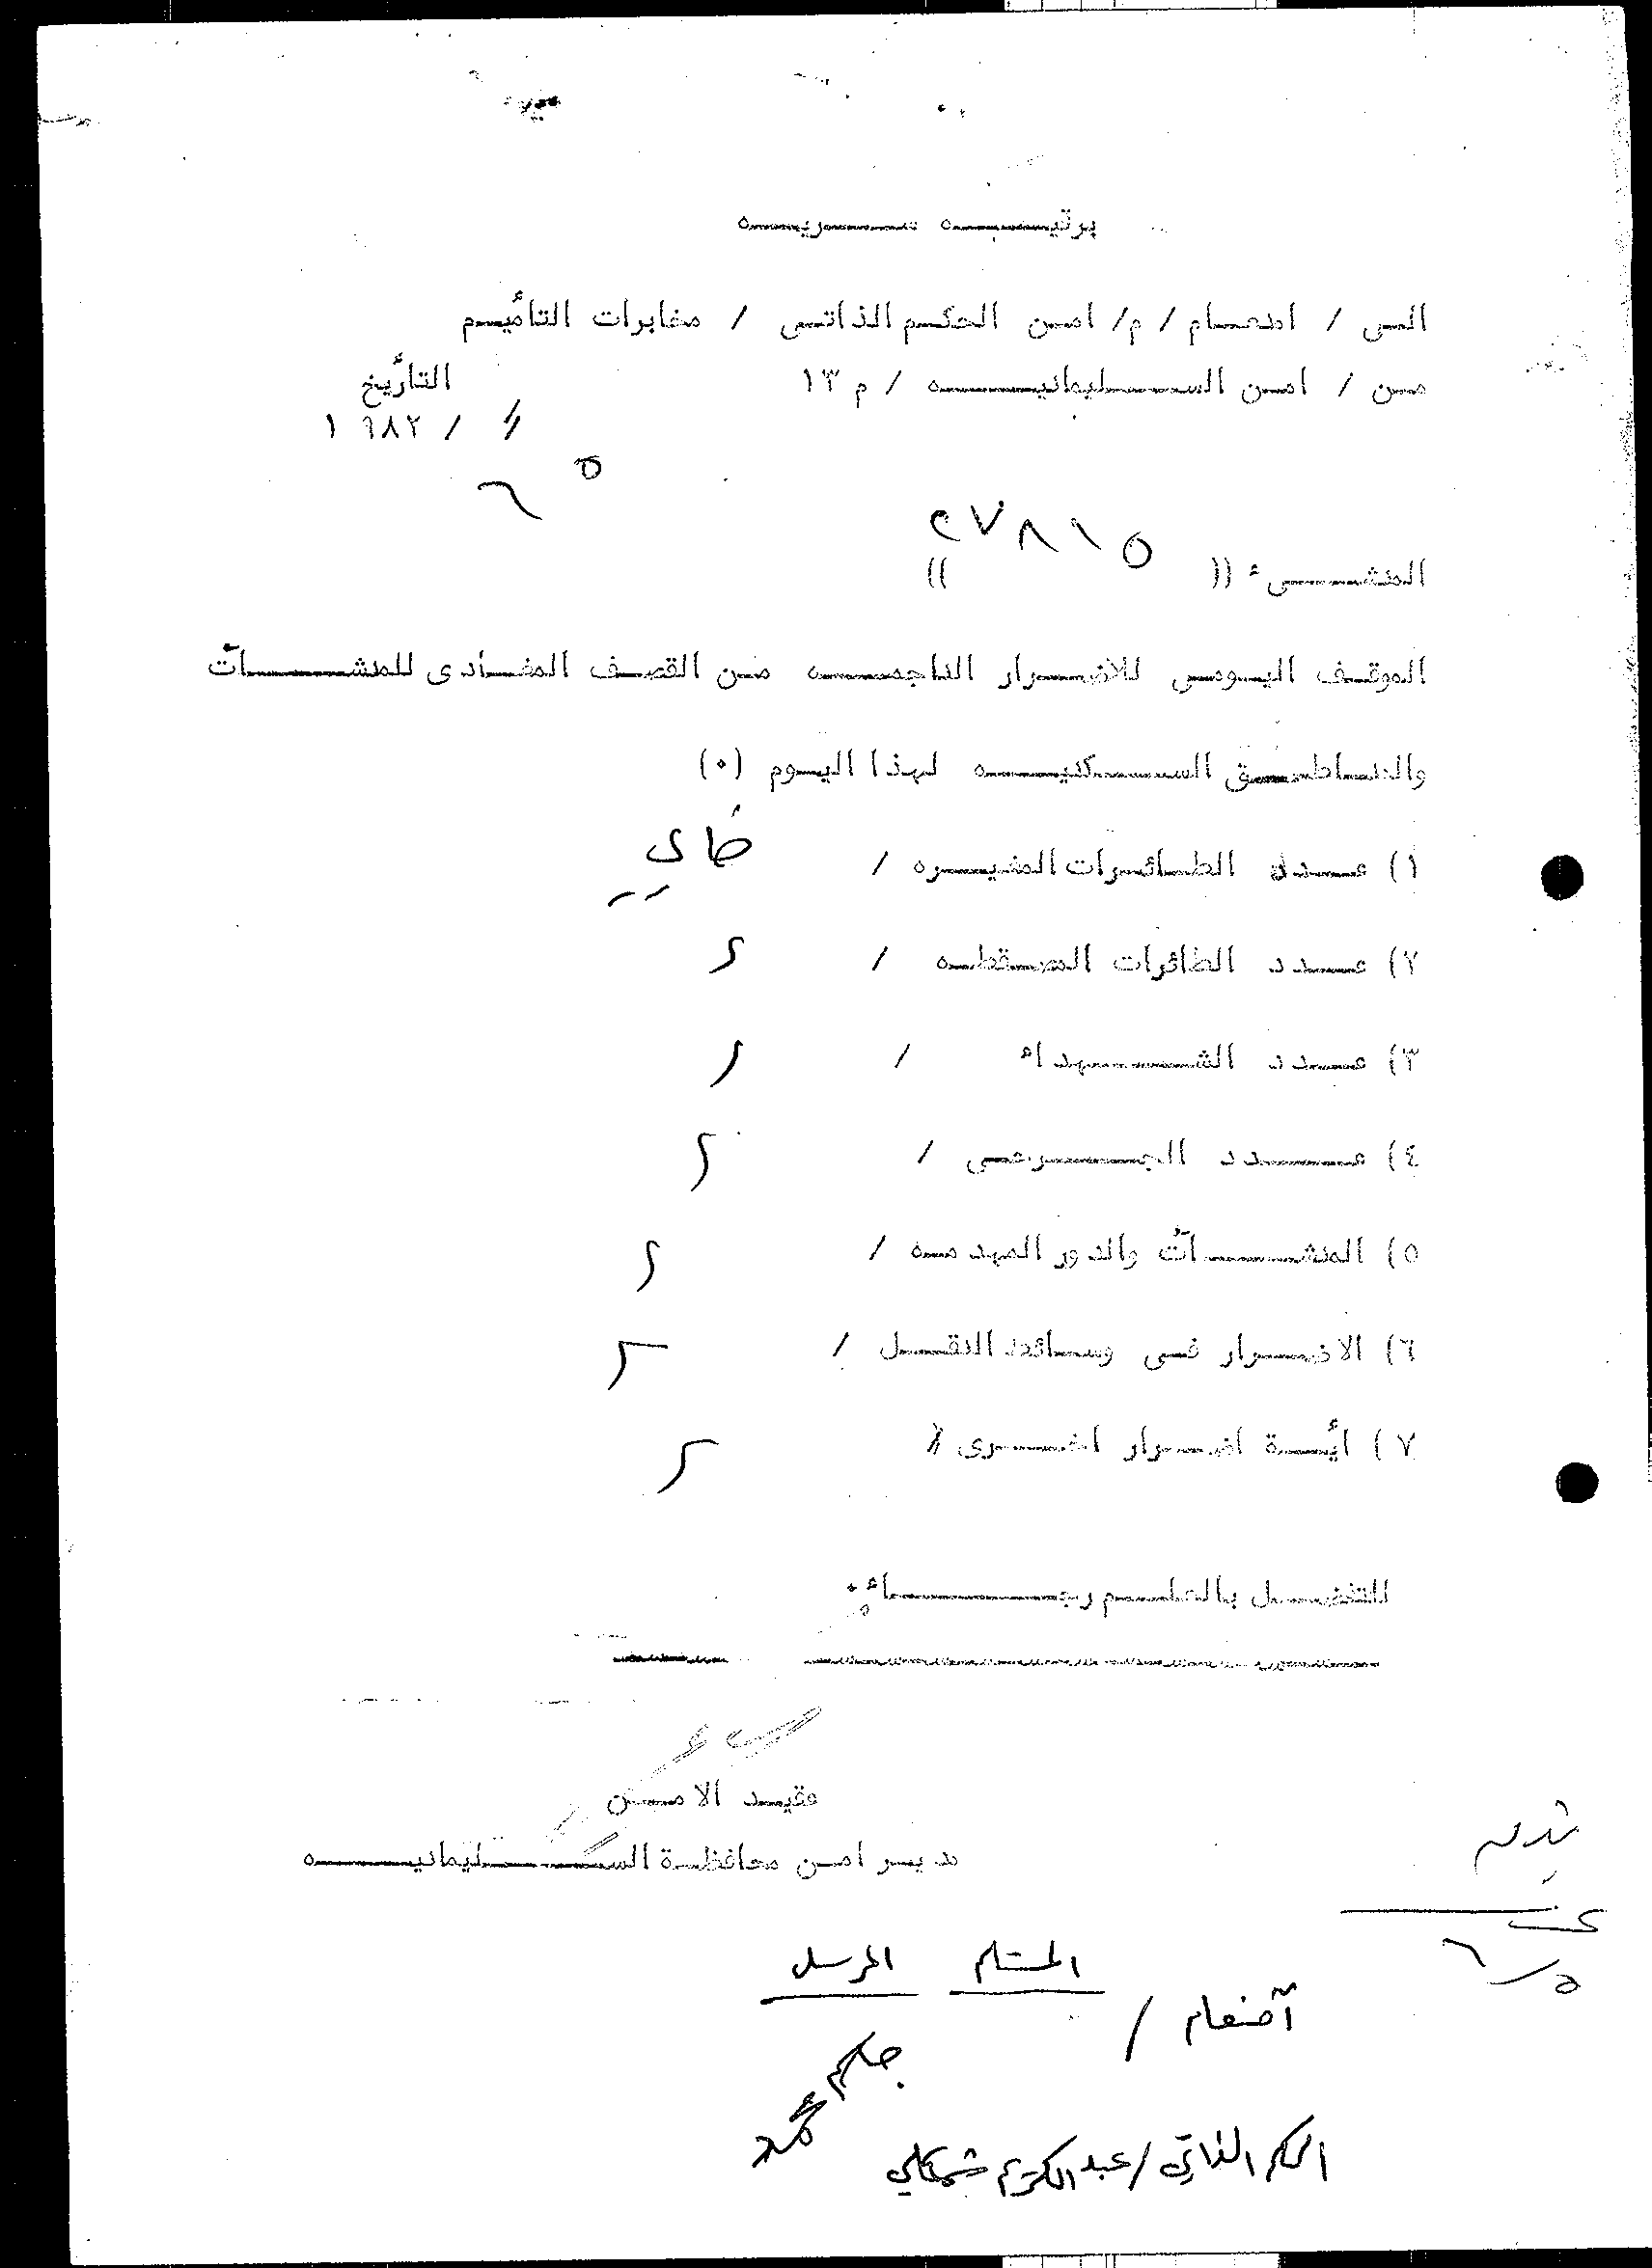 برقيه سريه
الى / امنعام / م/ امن الحكم الذاتي / مخابرات التأميم
من / امن السليمانيه / م ١٣
التأريخ
/ / ١٩٨٢
٥
٦
٢٧٨١٥
المنشىء (( ))
الموقف اليومي للاضرار الناجمه من القصف المعادى للمنشآت
والمناطق السكنيه لهذا اليوم (٠)
١) عدد الطائرات المغيره / خالي
٢) عدد الطائرات المسقطه /
٣) عدد الشهداء /
٤) عدد الجرحى /
٥) المنشآت والدور المهدمه /
٦) الاضرار في وسائط النقل /
٧) أية اضرار اخرى /
للتفضل بالعلم رجاء
عقيد الامن
مدير امن محافظة السليمانيه
٥/٦
المستلم المرسل
أمنعام /
محمد
الحكم الذاتي / عبد الكريم